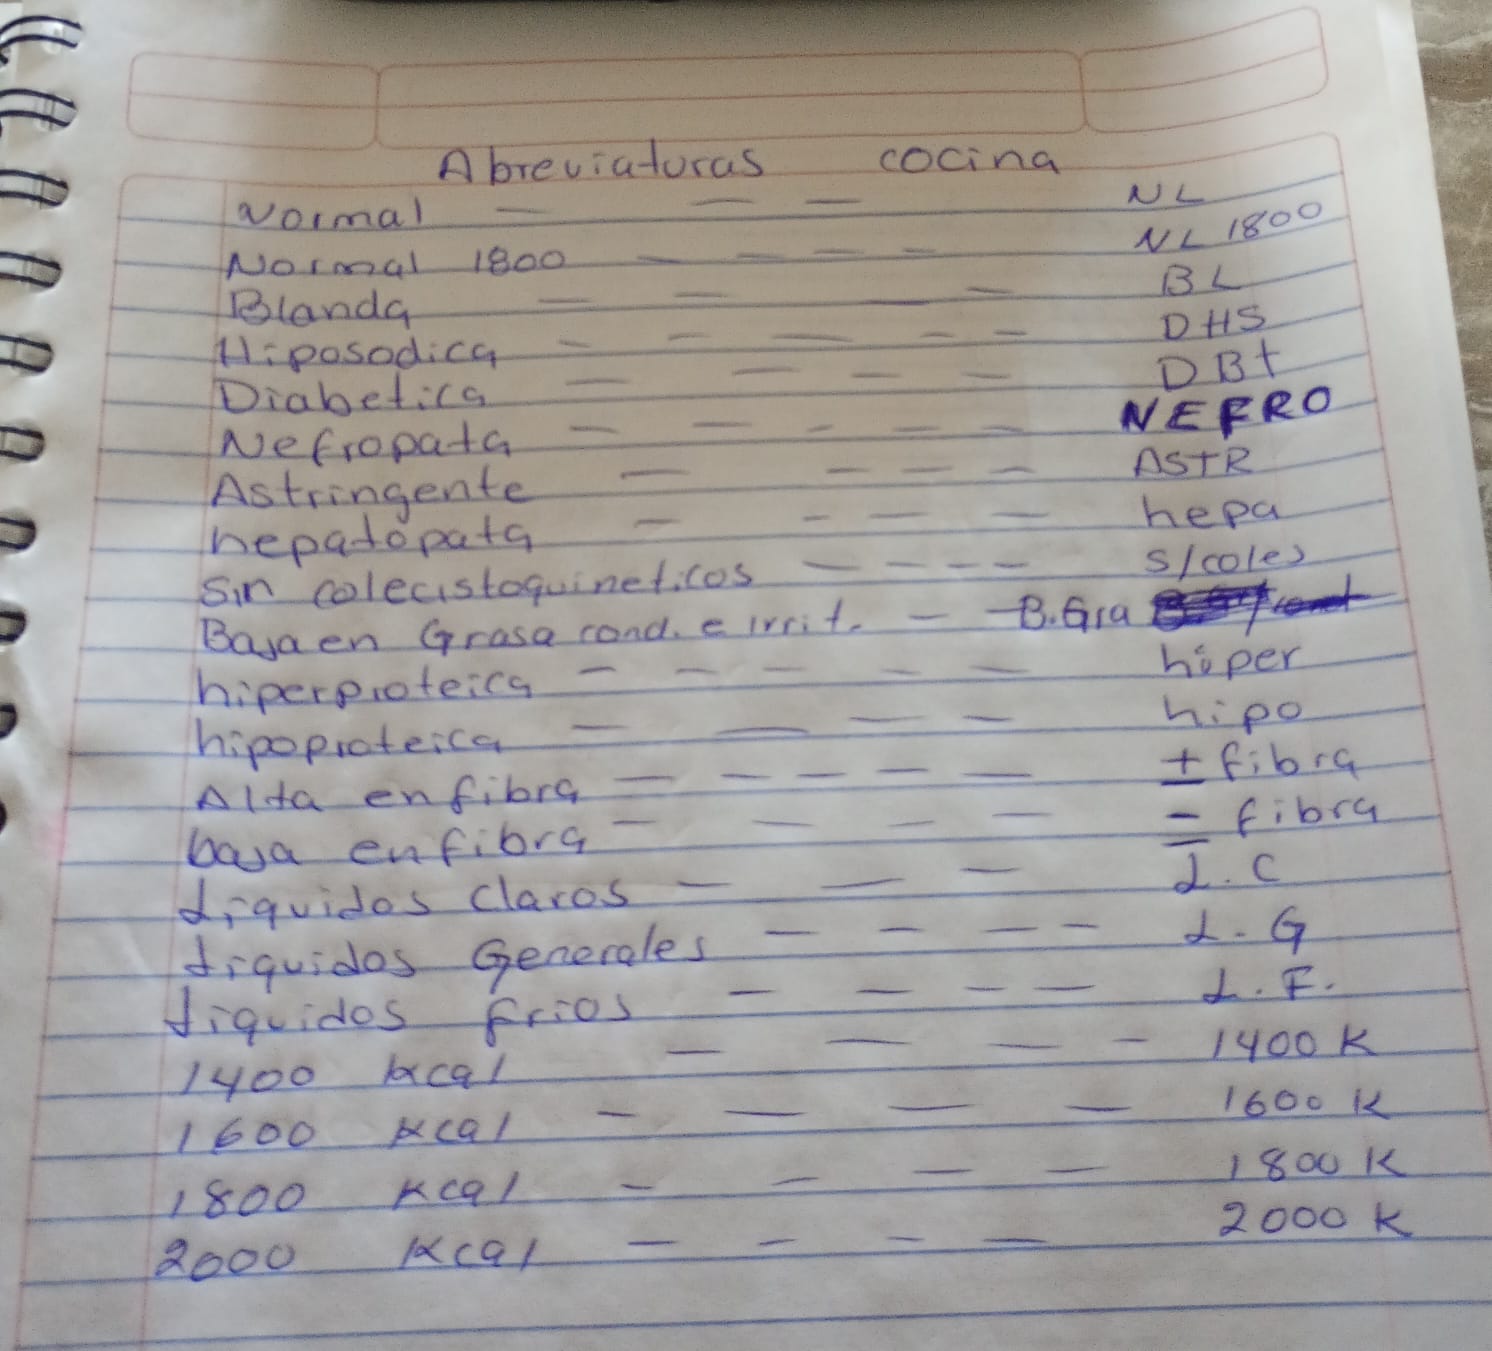 Abreviaturas cocina
Normal — — — NL
Normal 1800 — — — — NL 1800
Blanda — — — — BL
Hiposodica — — — — — DHS
Diabetica — — — — DBt
Nefropata — — — — — NEFRO
Astringente — — — — ASTR
hepatopata — — — — hepa
Sin colecistoquineticos — — — — s/coles
Baja en Grasa cond. e irrit. — — B.Gra
hiperproteica — — — — — hiper
hipoproteica — — — — hipo
Alta en fibra — — — — — + fibra
baja en fibra — — — — - fibra
Liquidos Claros — — — L.C
Liquidos Generales — — — — L.G
Liquidos frios — — — — L.F.
1400 kcal — — — — 1400 K
1600 Kcal — — — — 1600 K
1800 Kcal — — — — 1800 K
2000 Kcal — — — — 2000 K